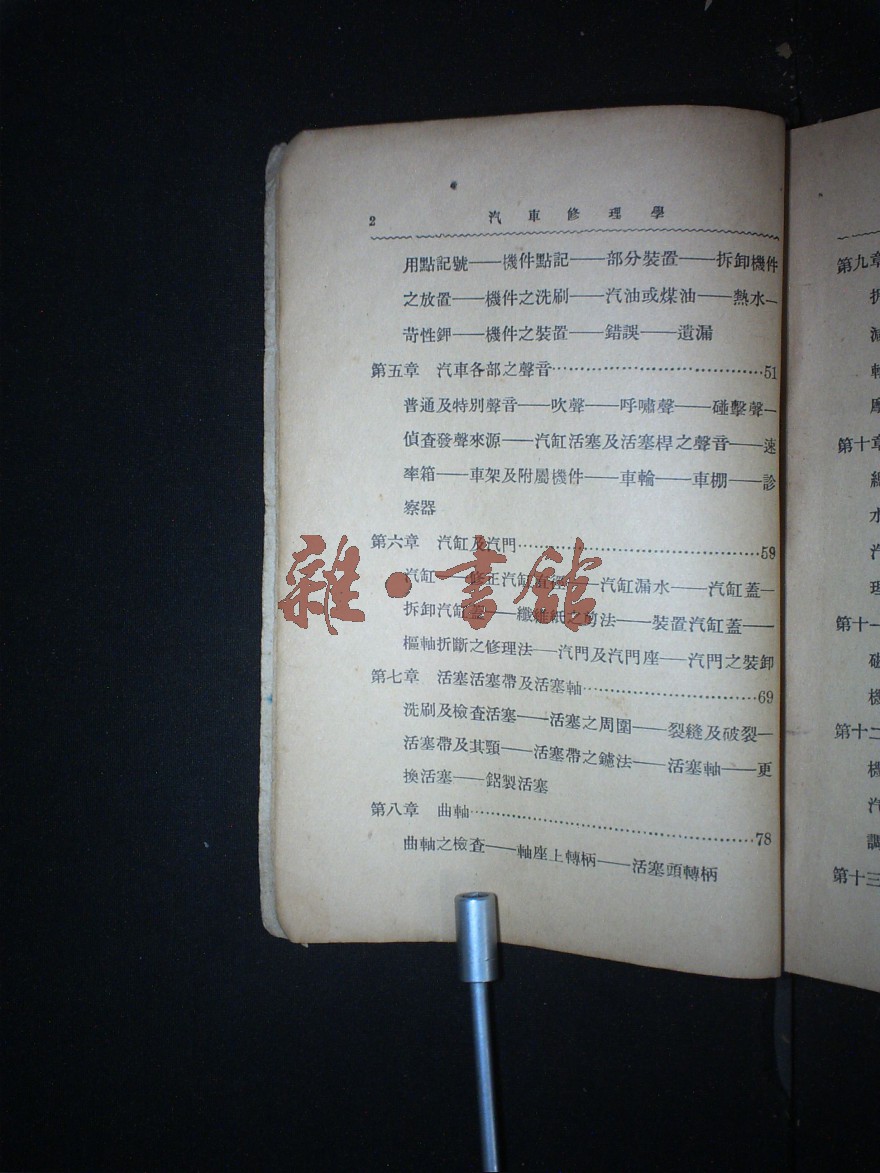 2 汽車修理學
用點記號——機件點記——部分裝置——拆卸機件
之放置——機件之洗刷——汽油或煤油——熱水—
苛性鉀——機件之裝置——錯誤——遺漏
第五章 汽車各部之聲音……………………………51
普通及特別聲音——吹聲——呼嘯聲——碰擊聲—
偵查發聲來源——汽缸活塞及活塞桿之聲音——速
率箱——車架及附屬機件——車輪——車棚——診
察器
第六章 汽缸及汽門…………………………………59
汽缸——修正汽缸直徑——汽缸漏水——汽缸蓋—
拆卸汽缸蓋——纖維紙之剪法——裝置汽缸蓋——
樞軸折斷之修理法——汽門及汽門座——汽門之裝卸
第七章 活塞活塞帶及活塞軸………………………69
洗刷及檢查活塞——活塞之周圍——裂縫及破裂—
活塞帶及其頸——活塞帶之鑢法——活塞軸——更
換活塞——鋁製活塞
第八章 曲軸…………………………………………78
曲軸之檢查——軸座上轉柄——活塞頭轉柄
雜·書館
第九章
第十章
水
第十一
第十二
調
第十三